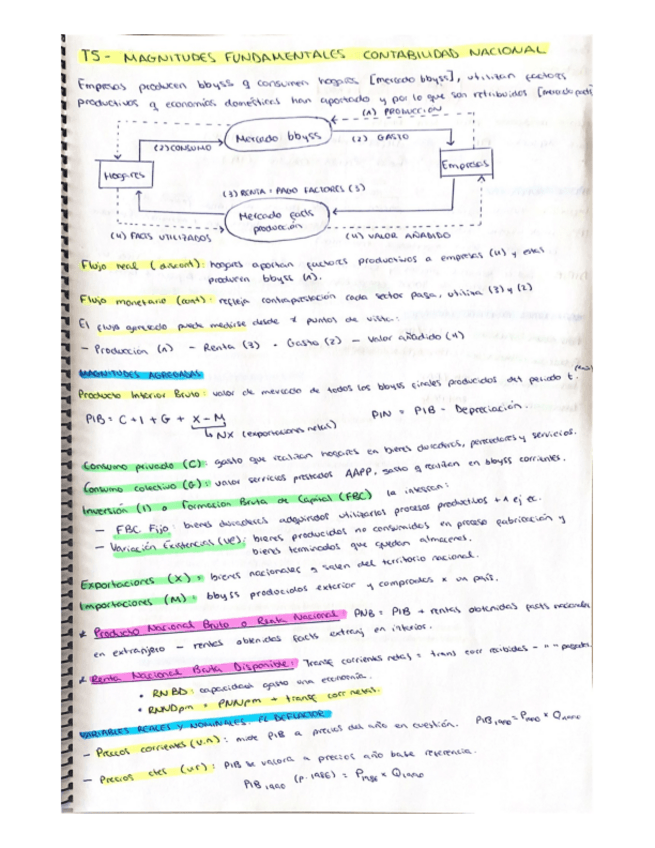 T5 - MAGNITUDES FUNDAMENTALES CONTABILIDAD NACIONAL
Empresas producen bbyss q consumen hogares [mercado bbyss], utilizan factores
productivos q economías domésticas han aportado y por lo que son retribuidos [mercado facts
(1) PRODUCCIÓN
Mercado bbyss
(2) CONSUMO
(2) GASTO
Hogares
Empresas
(3) RENTA = PAGO FACTORES (3)
Mercado facts
producción
(4) FACTS UTILIZADOS
(4) VALOR AÑADIDO
Flujo real (discont): hogares aportan factores productivos a empresas (4) y estas
producen bbyss (1).
Flujo monetario (cont): refleja contraprestación cada sector pasa, utiliza (3) y (2)
El flujo generado puede medirse desde x puntos de vista:
- Producción (1) - Renta (3) - Gasto (2) - Valor añadido (4)
MAGNITUDES AGREGADAS
Producto Interior Bruto: valor de mercado de todos los bbyss finales producidos del periodo t.
PIB = C + I + G + X - M
PIN = PIB - Depreciación.
NX (exportaciones netas)
Consumo privado (C): gasto que realizan hogares en bienes duraderos, perecederos y servicios.
Consumo colectivo (G): valor servicios prestados AAPP, gasto q realizan en bbyss corrientes.
Inversión (I) o Formación Bruta de Capital (FBC) la integran:
- FBC Fijo: bienes duraderos adquiridos utilizarlos procesos productivos +1 ej ec.
- Variación Existencias (VE): bienes producidos no consumidos en proceso fabricación y
bienes terminados que quedan almacenes.
Exportaciones (X): bienes nacionales q salen del territorio nacional.
Importaciones (M): bbyss producidos exterior y comprados x un país.
* Producto Nacional Bruto o Renta Nacional: PNB = PIB + rentas obtenidas facts nacionales
en extranjero - rentas obtenidas facts extranj en interior.
* Renta Nacional Bruta Disponible: Transf corrientes netas = trans corr recibidas - " " pagadas
• RNBD: capacidad gasto una economía.
• RNNDpm = PNNpm + transf corr netas.
VARIABLES REALES Y NOMINALES. EL DEFLACTOR
- Precios corrientes (v.n): mide PIB a precios del año en cuestión. PIB1990 = P1990 x Q1990
- Precios ctes (v.r): PIB se valora a precios año base referencia.
PIB1990 (p.1986) = P1986 x Q1990